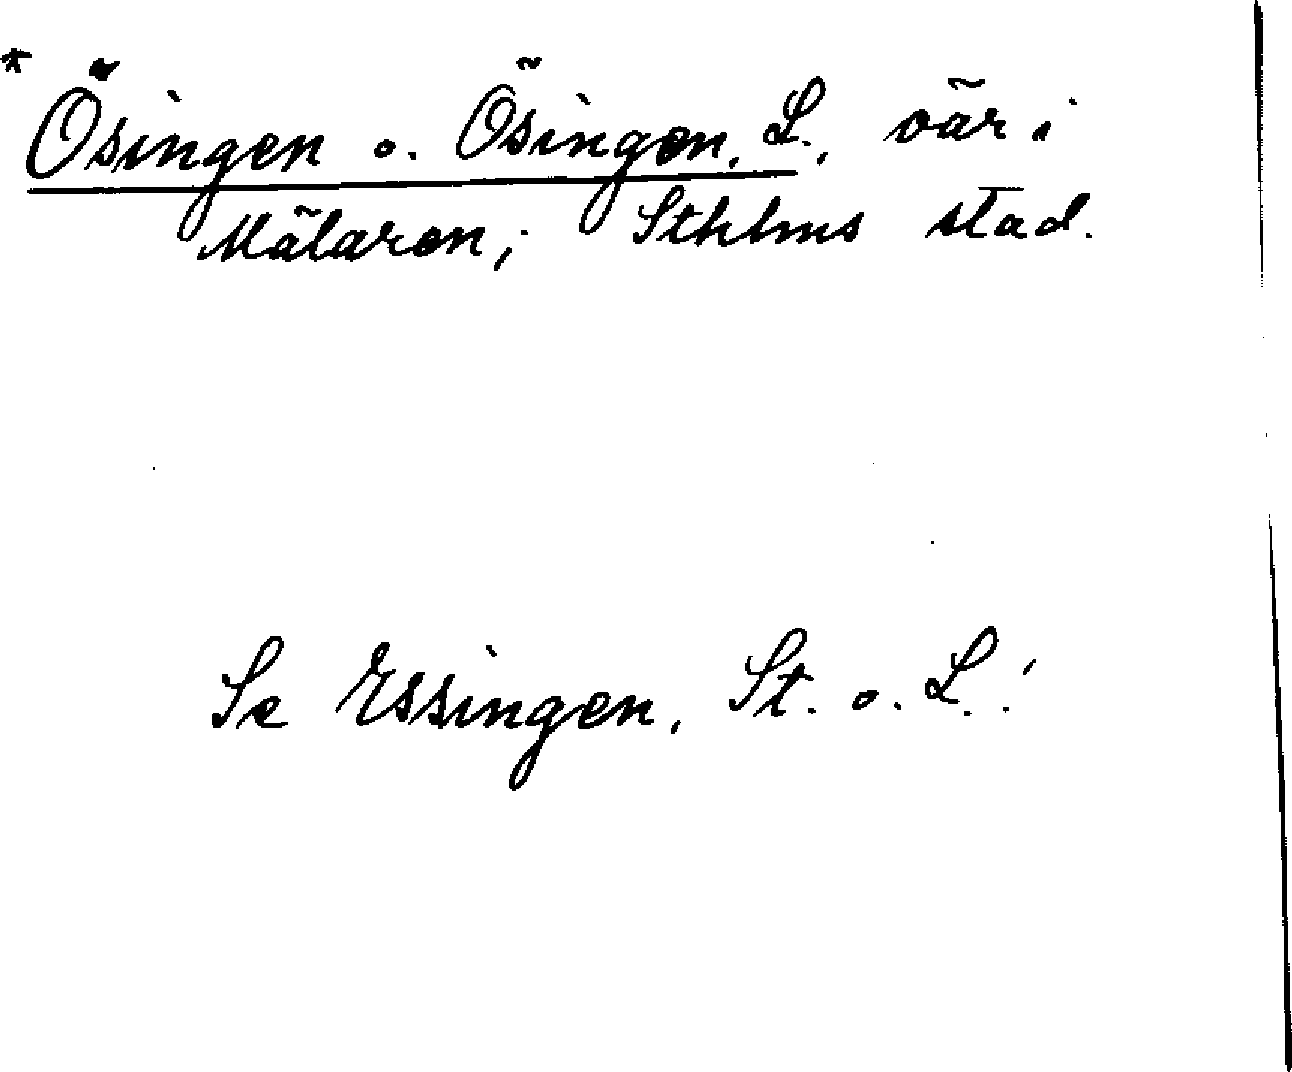 * Ösingen o. Ösingen, L., öar i
Mälaren, Sthlms stad.
Se Essingen, St. o. L.!